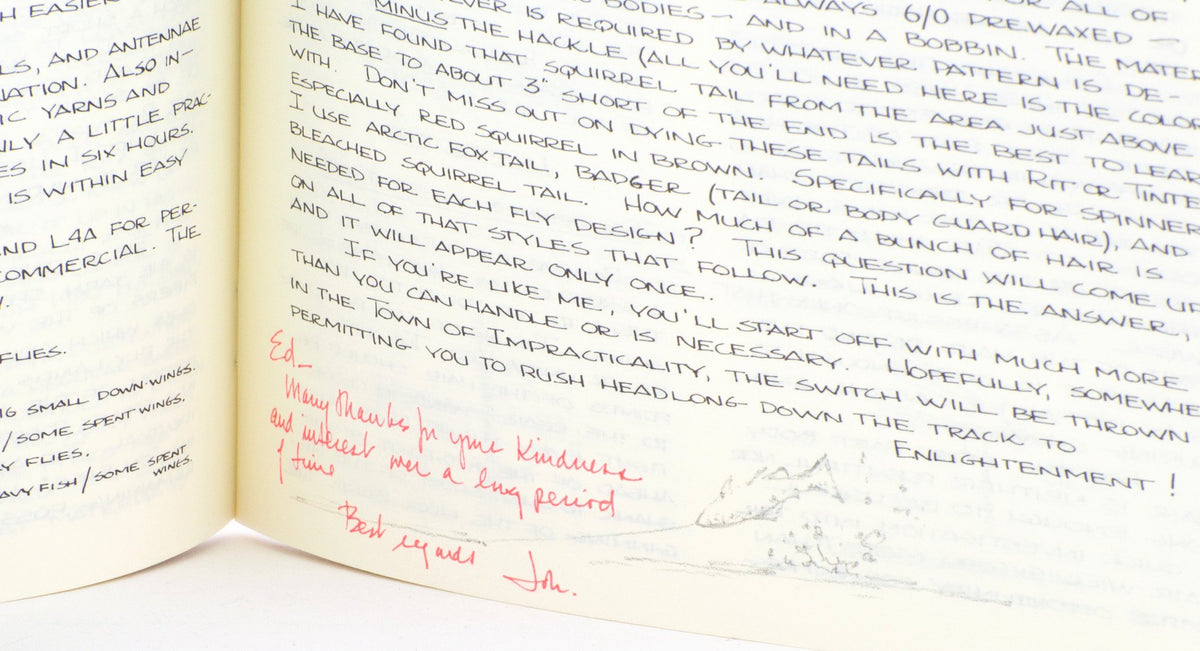 H EASIER
LS, AND ANTENNAE
IATION. ALSO IN-
IC YARNS AND
ILY A LITTLE PRAC-
ES IN SIX HOURS.
IS WITHIN EASY
AND L4A FOR PER-
COMMERCIAL. THE
FLIES.
NG SMALL DOWN-WINGS.
/SOME SPENT WINGS.
Y FLIES.
AVY FISH/SOME SPENT
WINGS.
FOR ALL OF
BODIES – AND IN A BOBBIN. THE MATER
ALWAYS 6/0 PREWAXED –
EVER IS REQUIRED BY WHATEVER PATTERN IS DE-
MINUS THE HACKLE (ALL YOU'LL NEED HERE IS THE COLOR
I HAVE FOUND THAT SQUIRREL TAIL FROM THE AREA JUST ABOVE
THE BASE TO ABOUT 3" SHORT OF THE END IS THE BEST TO LEAR
WITH. DON'T MISS OUT ON DYING THESE TAILS WITH RIT OR TINTE
ESPECIALLY RED SQUIRREL IN BROWN. SPECIFICALLY FOR SPINNERS
I USE ARCTIC FOX TAIL, BADGER (TAIL OR BODY GUARD HAIR), AND
BLEACHED SQUIRREL TAIL. HOW MUCH OF A BUNCH OF HAIR IS
NEEDED FOR EACH FLY DESIGN? THIS QUESTION WILL COME UP
ON ALL OF THAT STYLES THAT FOLLOW. THIS IS THE ANSWER,
AND IT WILL APPEAR ONLY ONCE.
IF YOU'RE LIKE ME, YOU'LL START OFF WITH MUCH MORE
THAN YOU CAN HANDLE OR IS NECESSARY. HOPEFULLY, SOMEWHE
IN THE TOWN OF IMPRACTICALITY, THE SWITCH WILL BE THROWN
PERMITTING YOU TO RUSH HEADLONG DOWN THE TRACK TO
ENLIGHTENMENT!
Ed –
Many thanks for your kindness
and interest over a long period
of time
Best regards